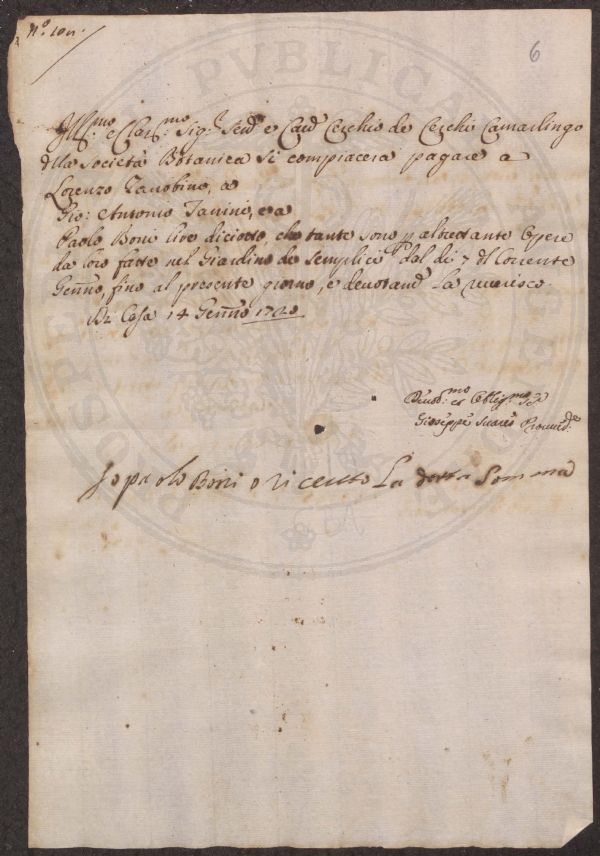 N.º 101.
6
Ill.mo e Clar.mo Sig.r Sen.e e Cav.e Cerchio de Cerchi Camarlingo
della Società Botanica si compiacerà pagare a
Lorenzo Zanobini, a
Gio: Antonio Janini, e a
Paolo Boni lire diciotto, che tante sono p altrettante Opere
da loro fatte nel Giardino de Semplici dal dì 7 del Corrente
Genn.o, fino al presente giorno, e devotam.e La riverisco.
Di Casa 14 Genn.o 1720
Devot.mo et Obblig.mo Se.e
Giuseppe Suares Proved.e
Jo paolo Boni o riceuto La detta Somma